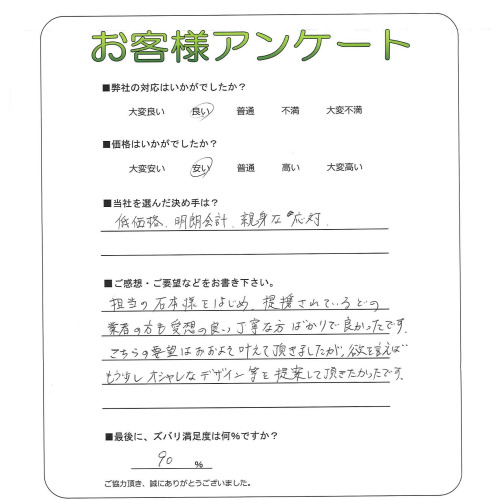 お客様アンケート
■弊社の対応はいかがでしたか？
大変良い 良い 普通 不満 大変不満
■価格はいかがでしたか？
大変安い 安い 普通 高い 大変高い
■当社を選んだ決め手は？
低価格、明朗会計、親身な応対、
■ご感想・ご要望などをお書き下さい。
担当の石本様をはじめ、提携されているどの
業者の方も愛想の良い丁寧な方ばかりで良かったです。
こちらの要望はおおよそ叶えて頂きましたが、欲を言えば
もう少しオシャレなデザイン等を提案して頂きたかったです。
■最後に、ズバリ満足度は何%ですか？
90 %
ご協力頂き、誠にありがとうございました。